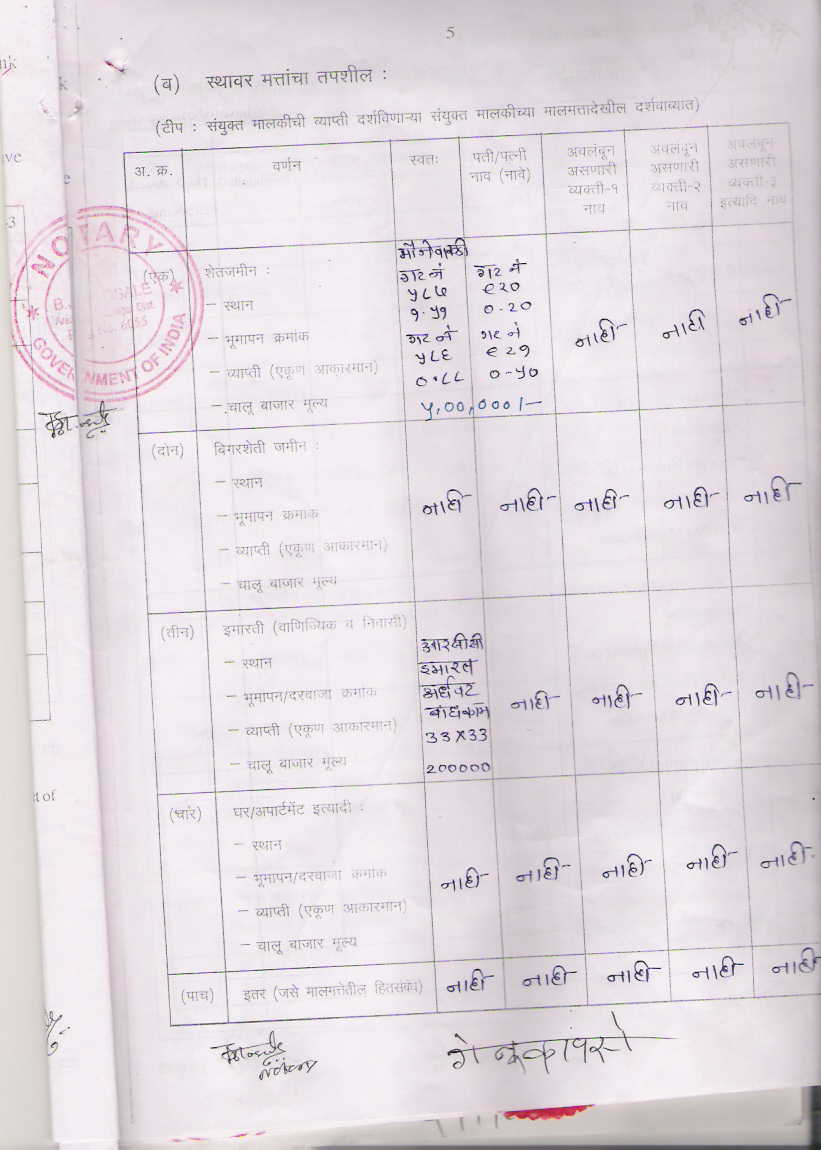 5
(ब) स्थावर मत्तांचा तपशील :
(टीप : संयुक्त मालकीची व्याप्ती दर्शविणाऱ्या संयुक्त मालकीच्या मालमत्तादेखील दर्शवाव्यात)
अ. क्र. वर्णन स्वतः पती/पत्नी नाव (नावे) अवलंबून असणारी व्यक्ती-१ नाव अवलंबून असणारी व्यक्ती-२ नाव अवलंबून असणारी व्यक्ती-३ इत्यादि नाव
(एक) शेतजमीन :
– स्थान
– भूमापन क्रमांक
– व्याप्ती (एकूण आकारमान)
– चालू बाजार मूल्य
गट नं
५८५
१.५१
गट नं
५८६
०.८८
गट नं
९२०
०.२०
गट नं
९२१
०-५०
५,00,000/-
नाही नाही नाही
(दोन) बिगरशेती जमीन :
– स्थान
– भूमापन क्रमांक
– व्याप्ती (एकूण आकारमान)
– चालू बाजार मूल्य
नाही नाही नाही नाही नाही
(तीन) इमारती (वाणिज्यिक व निवासी)
– स्थान
– भूमापन/दरवाजा क्रमांक
– व्याप्ती (एकूण आकारमान)
– चालू बाजार मूल्य
आरसीसी
इमारत
अर्धवट
बांधकाम
33X33
200000
नाही नाही नाही नाही
(चार) घर/अपार्टमेंट इत्यादी :
– स्थान
– भूमापन/दरवाजा क्रमांक
– व्याप्ती (एकूण आकारमान)
– चालू बाजार मूल्य
नाही नाही नाही नाही नाही
(पाच) इतर (जसे मालमत्तेतील हितसंबंध) नाही नाही नाही नाही नाही
NOTARY
GOVERNMENT OF INDIA